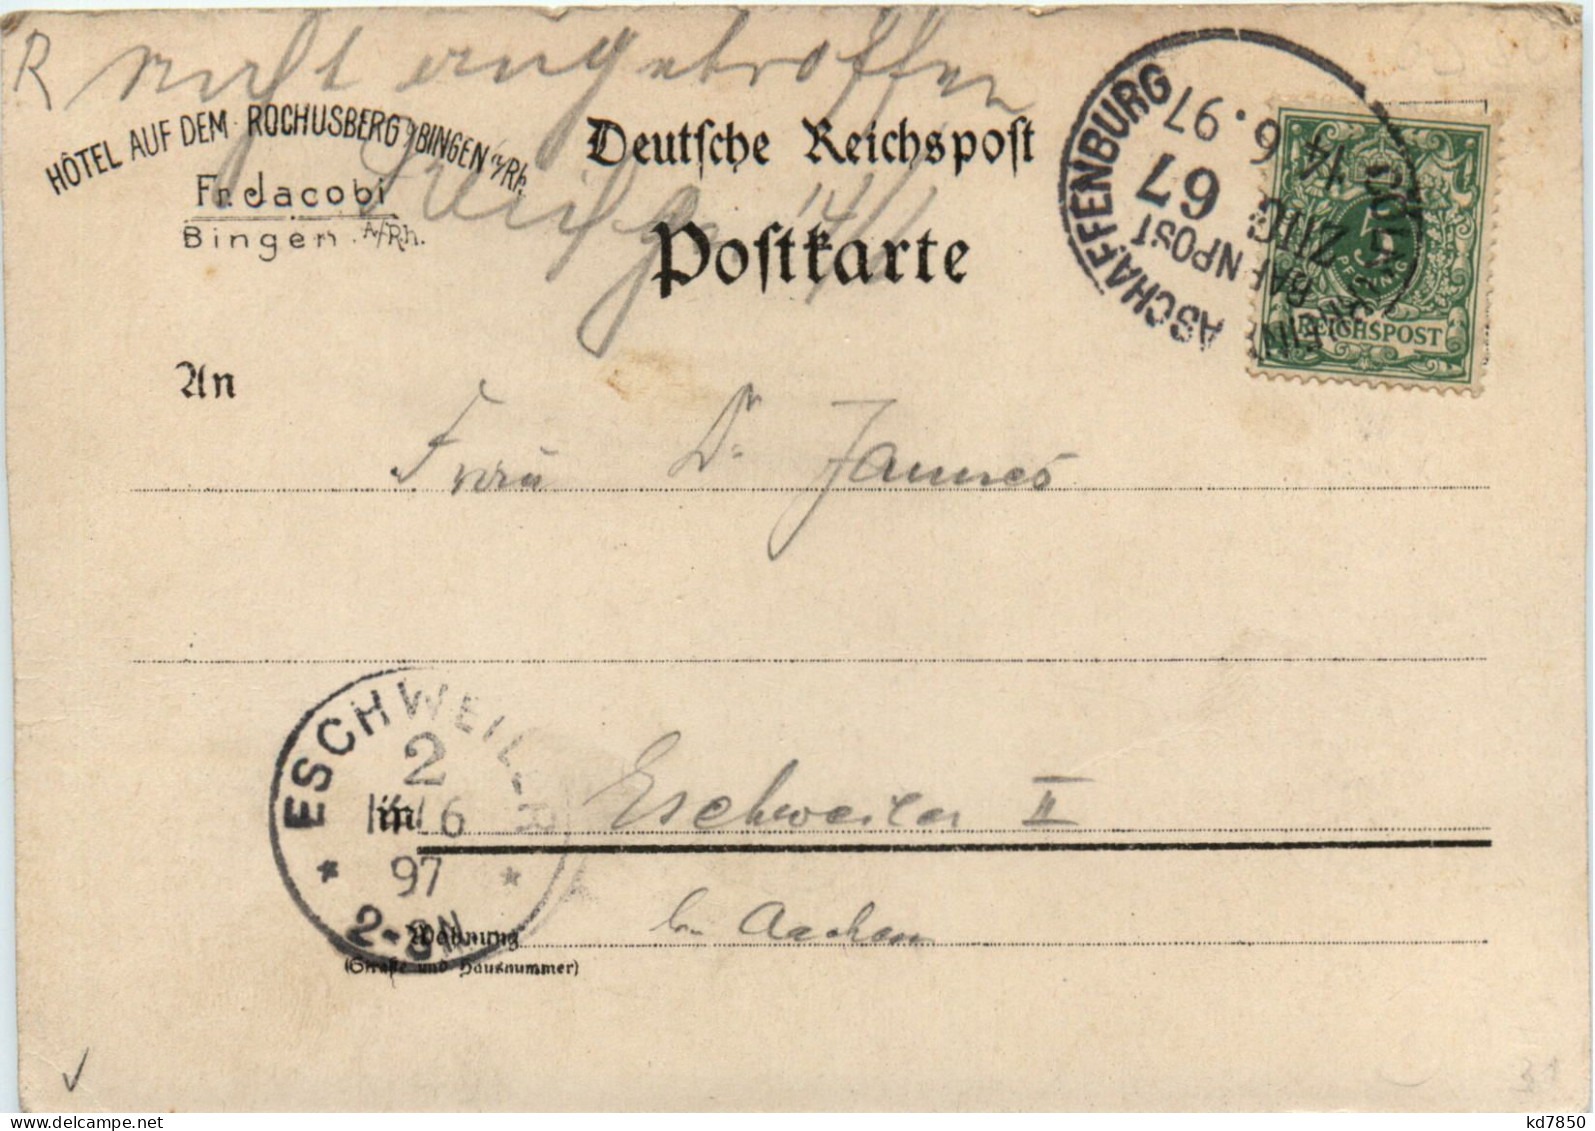 R nicht angetroffen
14/6
HÔTEL AUF DEM ROCHUSBERG b/BINGEN a/Rh.
Fr. Jacobi
Bingen a/Rh.
Deutsche Reichspost
Postkarte
ASCHAFFENBURG
BAHNPOST
ZUG 67
14 6.97
5
REICHSPOST
An
Frau Dr Jannes
ESCHWEILER
2
14/6
97
2-3N
in Eschweiler II
Wohnung bei Aachen
(Straße und Hausnummer)
31
kd7850